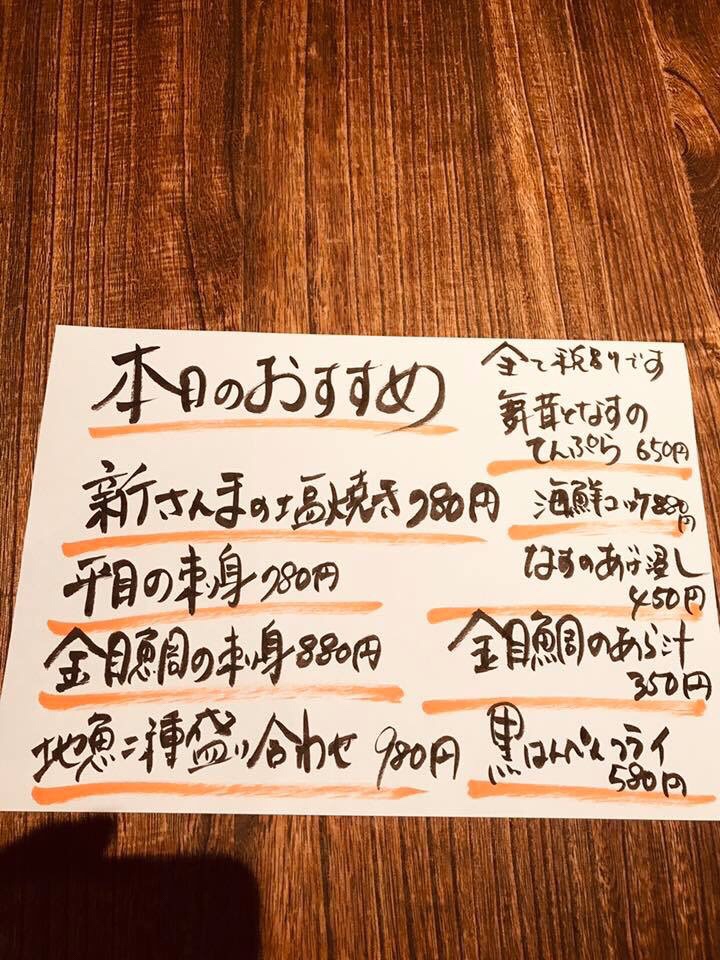 本日のおすすめ
新さんまの塩焼き780円
平目の刺身780円
金目鯛の刺身880円
地魚二種盛り合わせ 980円
全て税別です
舞茸となすの
てんぷら 650円
海鮮コロッケ880円
なすのあげ浸し
450円
金目鯛のあら汁
350円
黒はんぺんフライ
580円